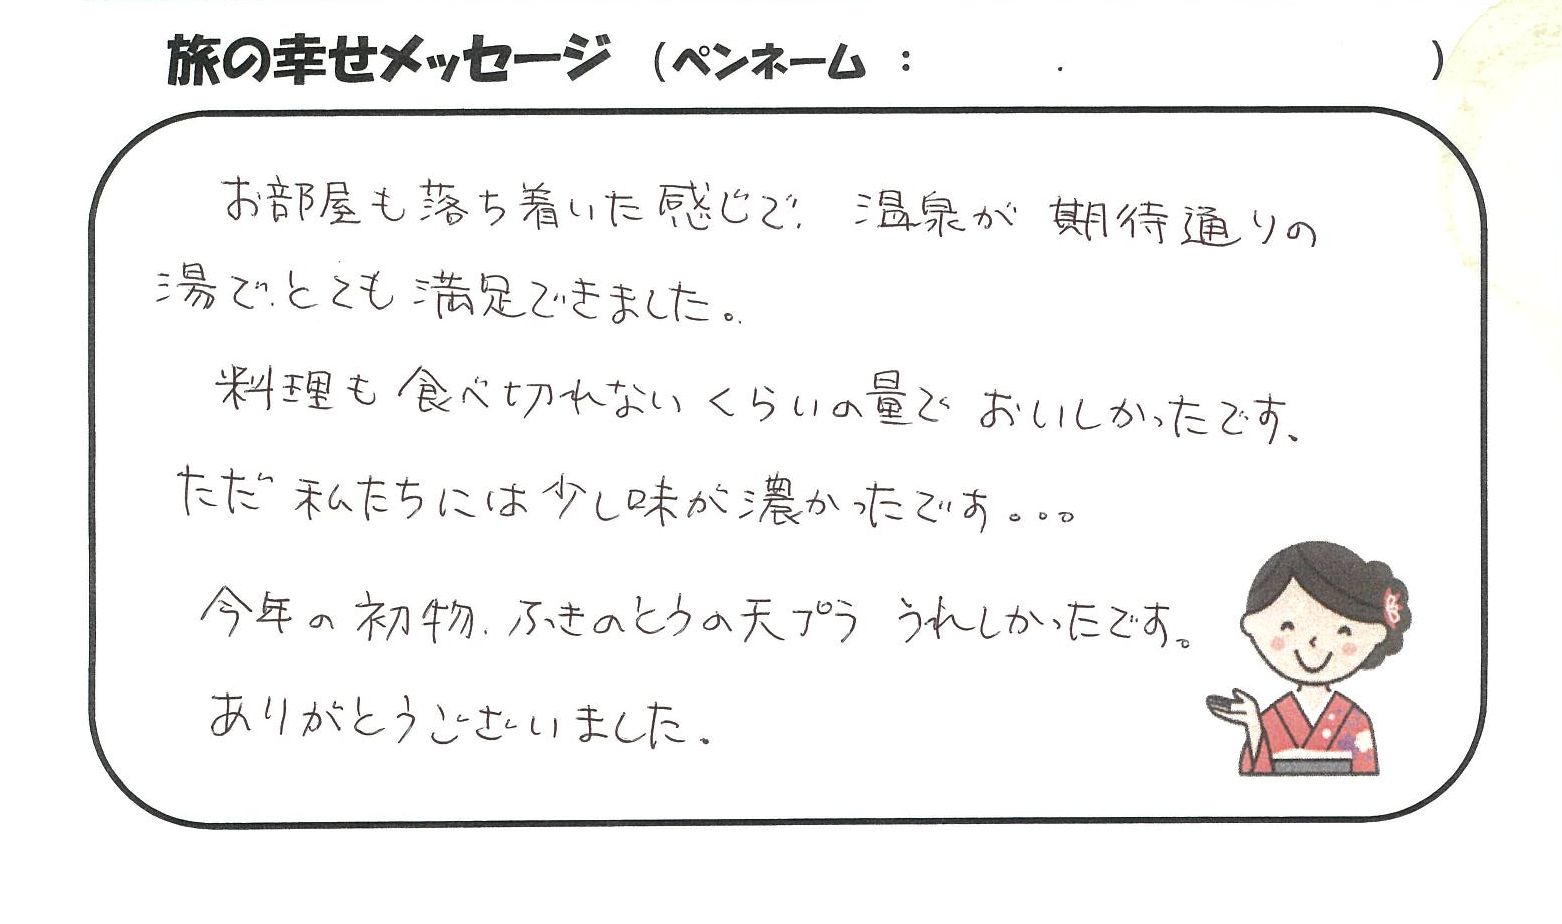 旅の幸せメッセージ (ペンネーム : )
お部屋も落ち着いた感じで、温泉が期待通りの
湯で、とても満足できました。
料理も食べ切れないくらいの量でおいしかったです、
ただ私たちには少し味が濃かったです。。。
今年の初物、ふきのとうの天プラ うれしかったです。
ありがとうございました。